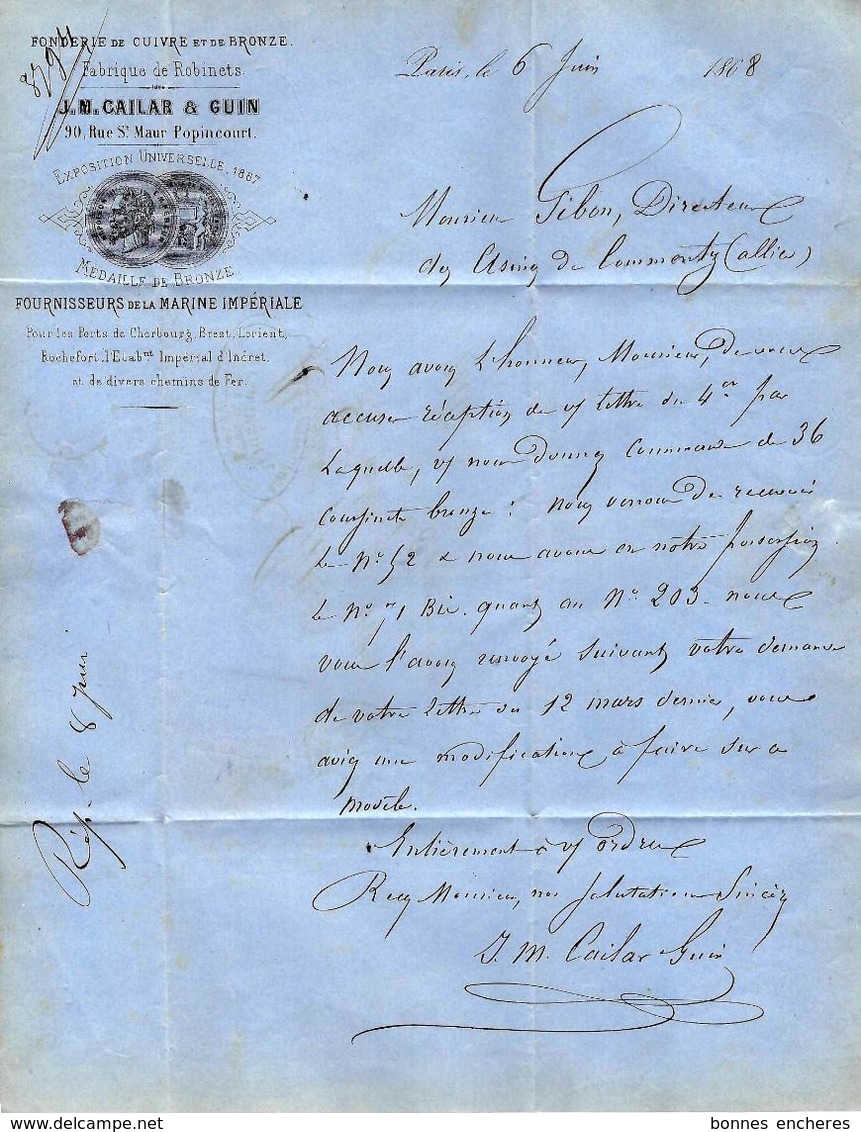 FONDERIE DE CUIVRE ET DE BRONZE.
Fabrique de Robinets
J.M. CAILAR & GUIN
90, Rue St Maur Popincourt.
EXPOSITION UNIVERSELLE, 1867
MEDAILLE DE BRONZE
FOURNISSEURS DE LA MARINE IMPÉRIALE
Pour les Ports de Cherbourg, Brest, Lorient,
Rochefort, l'Etabnt Impérial d'Indret,
et de divers chemins de Fer.
8794
Paris, le 6 Juin 1868
Monsieur Gibon, Directeur
des Usines de Commentry (allier)
Nous avons l'honneur, Monsieur, de vous
accuser réception de v/ lettre du 4 cr par
laquelle, v/ nous donnez commande de 36
coussinets bronze : nous venons de recevoir
le No 52 & nous avons en notre possession
le No 71 Bis. quant au No 203. nous
vous l'avons renvoyé suivant votre demande
de votre lettre du 12 mars dernier, vous
aviez une modification à faire sur ce
modèle.
Entièrement à v/ ordres
Recez Monsieur, nos salutations Sincères
J. M. Cailar Guin
Rép. le 8 Juin
bonnes encheres